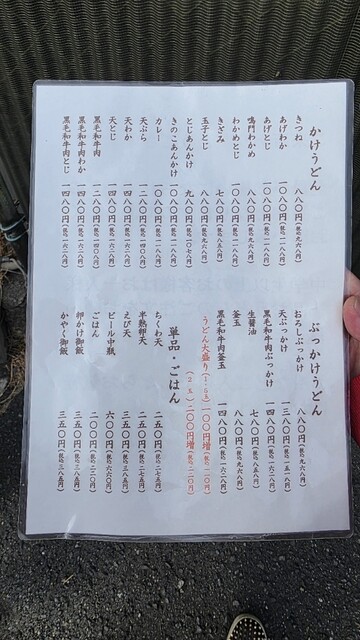 かけうどん
きつね 八八〇円（税込九六八円）
あげわか 一〇八〇円（税込一一八八円）
あげとじ 一〇八〇円（税込一一八八円）
鳴門わかめ 八八〇円（税込九六八円）
わかめとじ 一〇八〇円（税込一一八八円）
きざみ 七八〇円（税込八五八円）
玉子とじ 八八〇円（税込九六八円）
とじあんかけ 九八〇円（税込一〇七八円）
きのこあんかけ 一〇八〇円（税込一一八八円）
カレー 一〇八〇円（税込一一八八円）
天ぷら 一二八〇円（税込一四〇八円）
天わか 一四八〇円（税込一六二八円）
天とじ 一四八〇円（税込一六二八円）
黒毛和牛肉 一二八〇円（税込一四〇八円）
黒毛和牛肉わか 一四八〇円（税込一六二八円）
黒毛和牛肉とじ 一四八〇円（税込一六二八円）
ぶっかけうどん
おろしぶっかけ 八八〇円（税込九六八円）
天ぶっかけ 一三八〇円（税込一五一八円）
黒毛和牛肉ぶっかけ 一四八〇円（税込一六二八円）
生醤油 七八〇円（税込八五八円）
釜玉 八八〇円（税込九六八円）
黒毛和牛肉釜玉 一四八〇円（税込一六二八円）
うどん大盛り（1.5玉）一〇〇円増（税込一一〇円）
（2玉）二〇〇円増（税込二二〇円）
単品・ごはん
ちくわ天 二五〇円（税込二七五円）
半熟卵天 二五〇円（税込二七五円）
えび天 三五〇円（税込三八五円）
ビール中瓶 六〇〇円（税込六六〇円）
ごはん 二〇〇円（税込二二〇円）
卵かけ御飯 三五〇円（税込三八五円）
かやく御飯 三五〇円（税込三八五円）